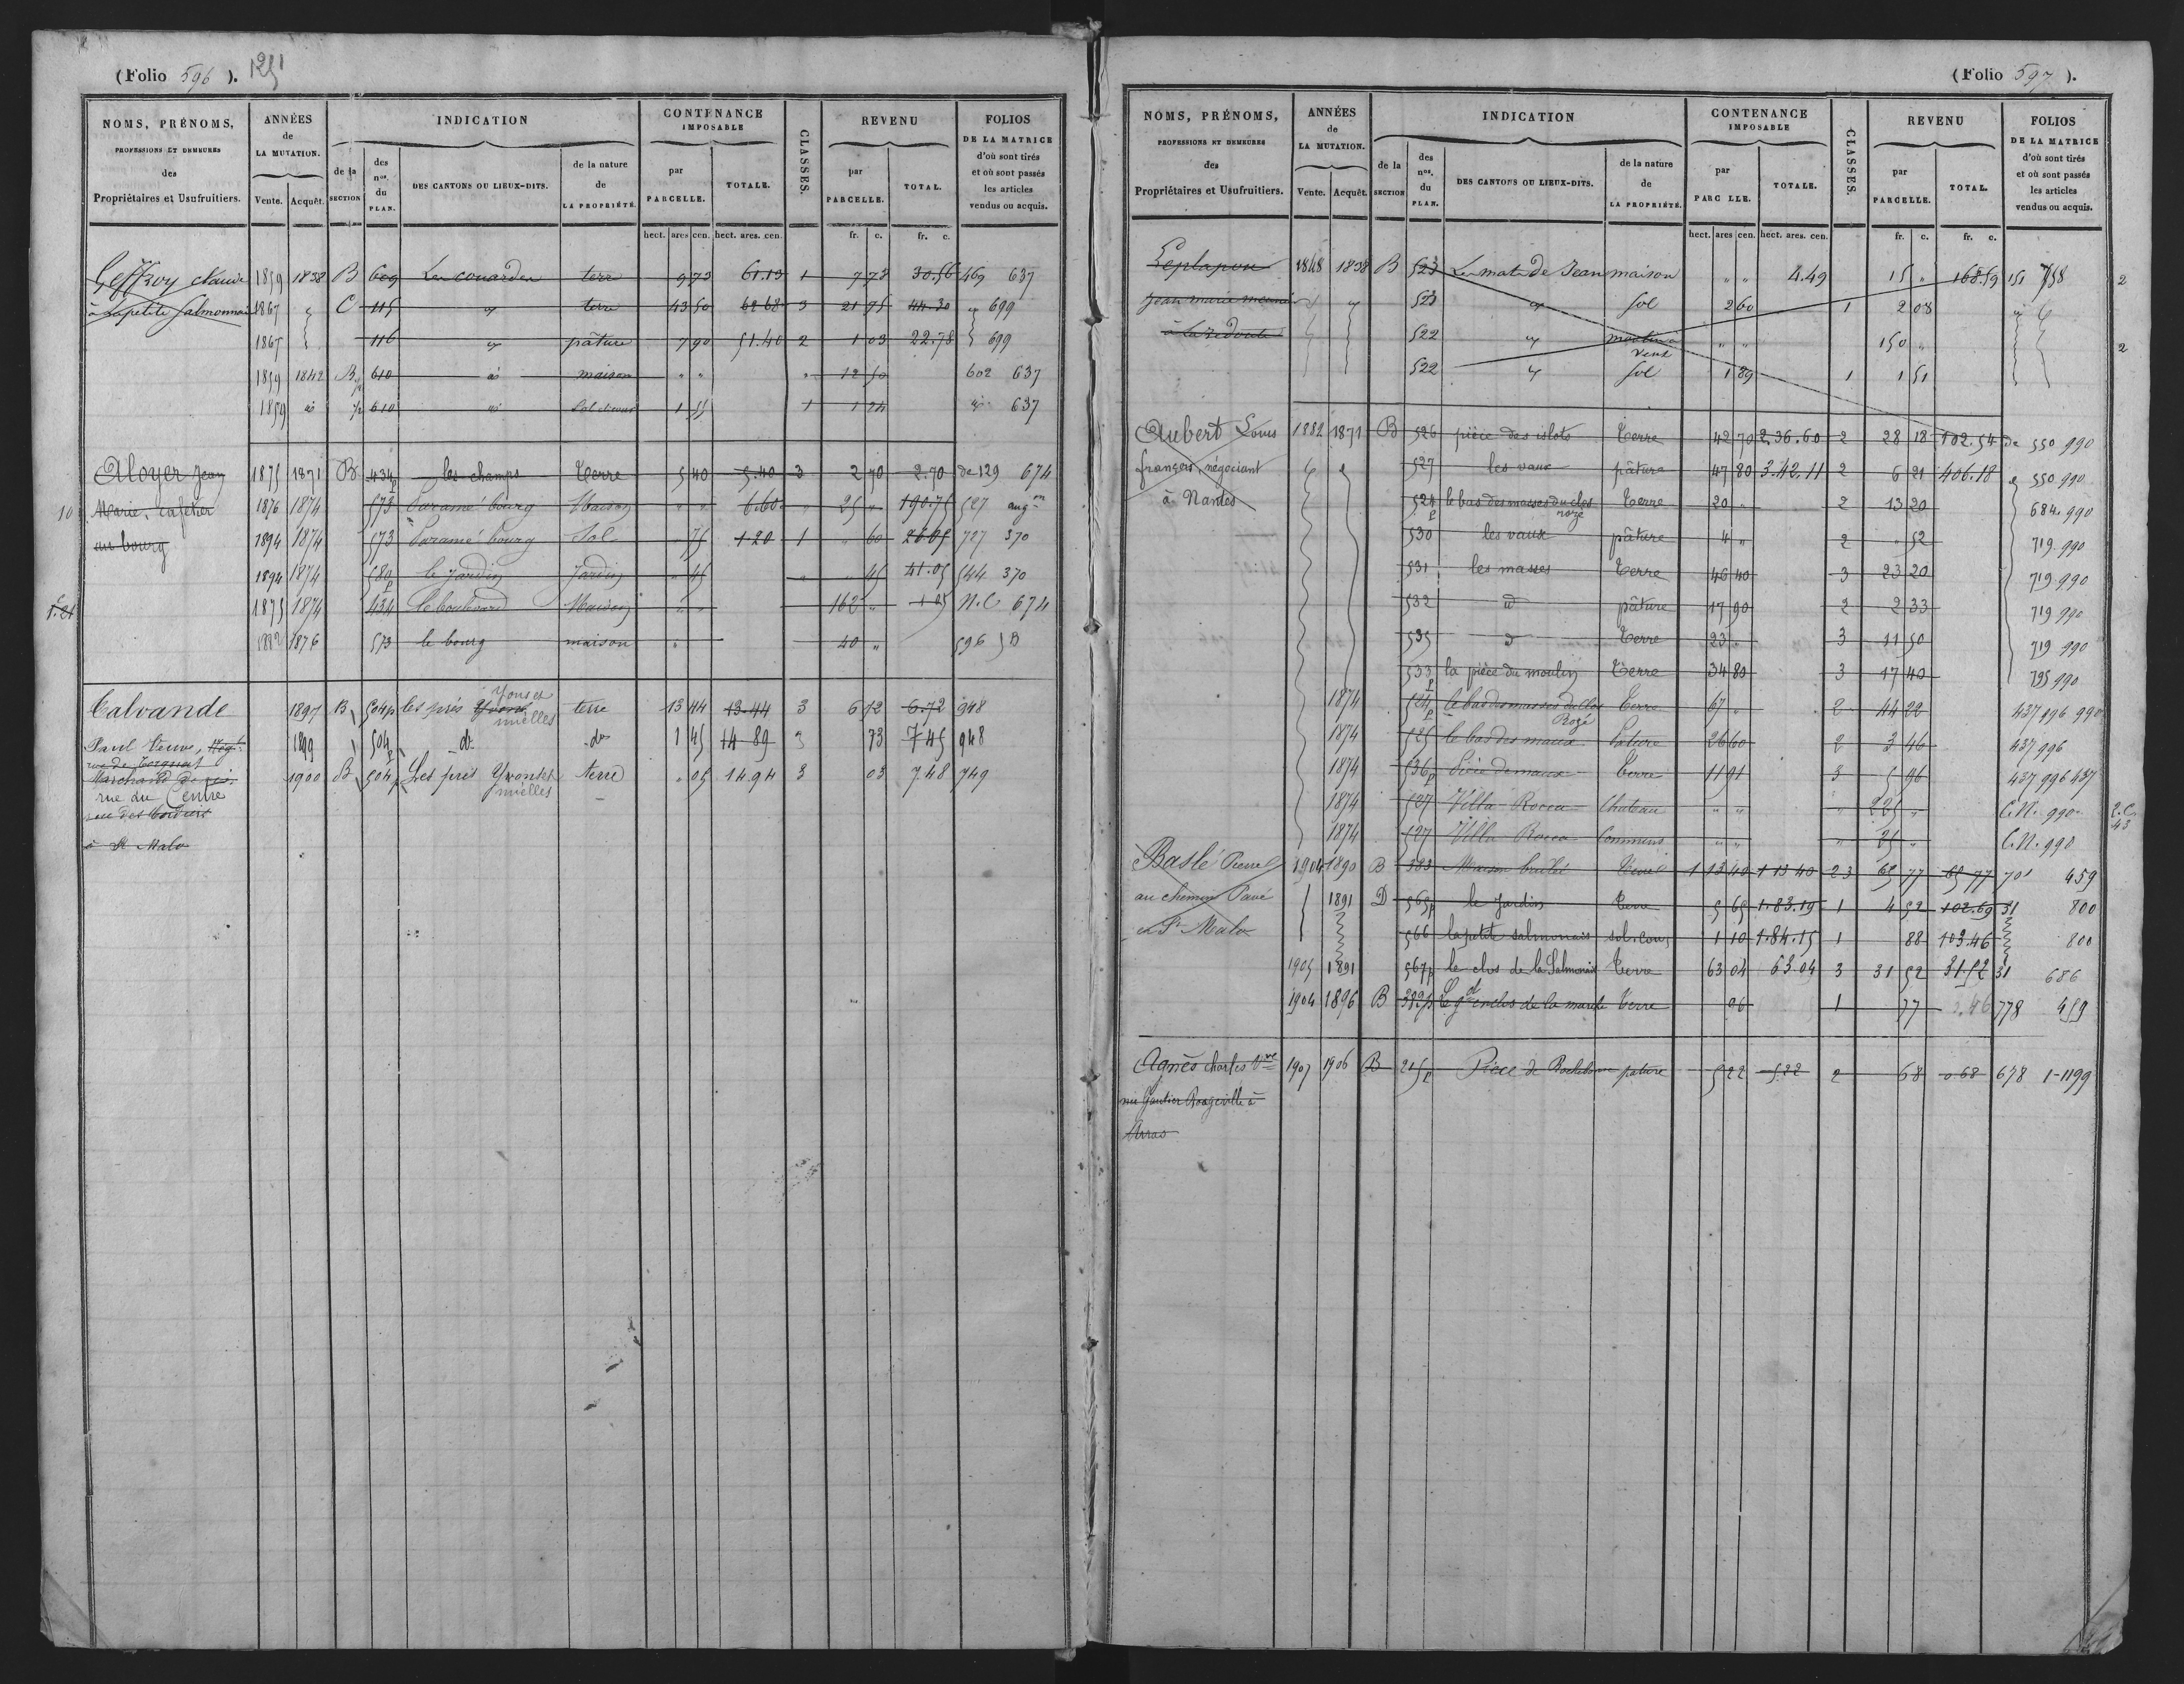 (Folio 596 ). 1251
NOMS, PRÉNOMS, PROFESSIONS ET DEMEURES des Propriétaires et Usufruitiers.
ANNÉES de LA MUTATION. Vente. Acquêt.
INDICATION
de la SECTION
des nos. du PLAN.
DES CANTONS OU LIEUX-DITS.
de la nature de LA PROPRIÉTÉ.
CONTENANCE IMPOSABLE
par PARCELLE. TOTALE.
CLASSES.
REVENU
par PARCELLE. TOTAL.
FOLIOS DE LA MATRICE d'où sont tirés et où sont passés les articles vendus ou acquis.
hect. ares cen. hect. ares. cen. fr. c. fr. c.
Geffroy claude 1859 1838 B 609 terre 9 73 61.13 1 7 73 30.56 469 637
à la petite Salmonnais 1867 " C 115 " terre 43 50 62 68 3 21 75 44.30 " 699
1867 116 " pâture 7 90 51.40 2 1 03 22.78 699
1859 1842 B 610 id maison " " " 12 50 602 637
1859 id 610 id Sol et cour 1 55 1 1 24 id 637
Aloyer Jean 1875 1871 B 434p les champs Terre 5 40 5.40 3 2 70 2.70 de 129 674
10 Marie, cafetier 1876 1874 573 Paramé bourg Maison " " 6.60 " 25 " 190.75 527 augon
au bourg 1894 1874 573 Paramé bourg Sol " 75 1 20 1 " 60 26.05 727 370
1894 1874 580p le Jardin Jardin " 45 " " 45 41.05 544 370
1875 1874 434 le boulevard Maison " " 162 " 1 05 N.C 674
1882 1876 573 le bourg maison " 40 " 596 5B
Calvande 1897 B 504p les prés Yvonset nuelles terre 13 44 13.44 3 6 72 6.72 948
Paul Veuve, Négt 1899 504p do do 1 45 14 89 3 73 7 45 948
rue de Torquat
Marchand 1900 B 504p Les prés Yvonset nuelles terre " 05 14.94 3 03 7.48 749
rue du Centre
rue des Cordiers
à St Malo
(Folio 597 ).
NOMS, PRÉNOMS, PROFESSIONS ET DEMEURES des Propriétaires et Usufruitiers.
ANNÉES de LA MUTATION. Vente. Acquêt.
INDICATION
de la SECTION
des nos. du PLAN.
DES CANTONS OU LIEUX-DITS.
de la nature de LA PROPRIÉTÉ.
CONTENANCE IMPOSABLE
par PARC LLE. TOTALE.
CLASSES.
REVENU
par PARCELLE. TOTAL.
FOLIOS DE LA MATRICE d'où sont tirés et où sont passés les articles vendus ou acquis.
hect. ares cen. hect. ares. cen. fr. c. fr. c.
Leplapou 1848 1838 B 523 de Jean maison " " 4.49 15 " 168.59 151 758 2
Jean marie meunier " " 523 " Sol 2 60 1 2 08
à la redoute 522 " moulin à vent " " 150 " 2
522 " Sol 1 89 1 1 51
Aubert Louis 1882 1871 B 526 pièce des islots Terre 42 70 2.36.60 2 28 18 102.54 de 550 990
françois, négociant 527 les vaux pâture 47 80 3.42.11 2 6 21 406.18 550 990
à Nantes 524p le bas des masses du clos rozé Terre 20 " 2 13 20 684. 990
530 les vaux pâture 4 " 2 " 52 719. 990
531 les masses Terre 46 40 3 23 20 719 990
532 d pâture 17 90 2 2 33 719 990
535 d Terre 23 " 3 11 50 719 990
533p la pièce du moulin Terre 34 80 3 17 40 795 990
1874 524p le bas des masses du Clos Rozé Terre 67 " 2 44 22 437 996 990
1874 525 le bas des maux Pature 26 60 2 3 46 437 996
1874 536p Pièce de maux Terre 11 91 3 5 96 437 996 437
1874 527 Villa Rocca Chateau " " " 225 " C.N. 990 2.C 43
1874 527 Villa Rocca Communs " " " 25 " C.N. 990
Baslé Pierre 1904 1890 B 383 Maison brulée Terre 1 13 40 1 13 40 2 3 65 77 65 77 701 459
au chemin Pavé 1891 D 565p le Jardin Terre 5 65 1.83.19 1 4 52 102.69 31 800
en St Malo 566 la petite salmonais sol. cour 1 10 1.84.15 1 88 103.46 800
1905 1891 567p le clos de la Salmonais Terre 63 04 63.04 3 31 52 31.52 31 686
1904 1896 B 382p Le gd enclos de la mare Terre 96 1 77 778 459
Agnès Charles Vve 1907 1906 B 215p Pièce de Rochebonne pature 5 22 5.22 2 68 0.68 678 1-1199
née Gautier Rougeville à
Arras